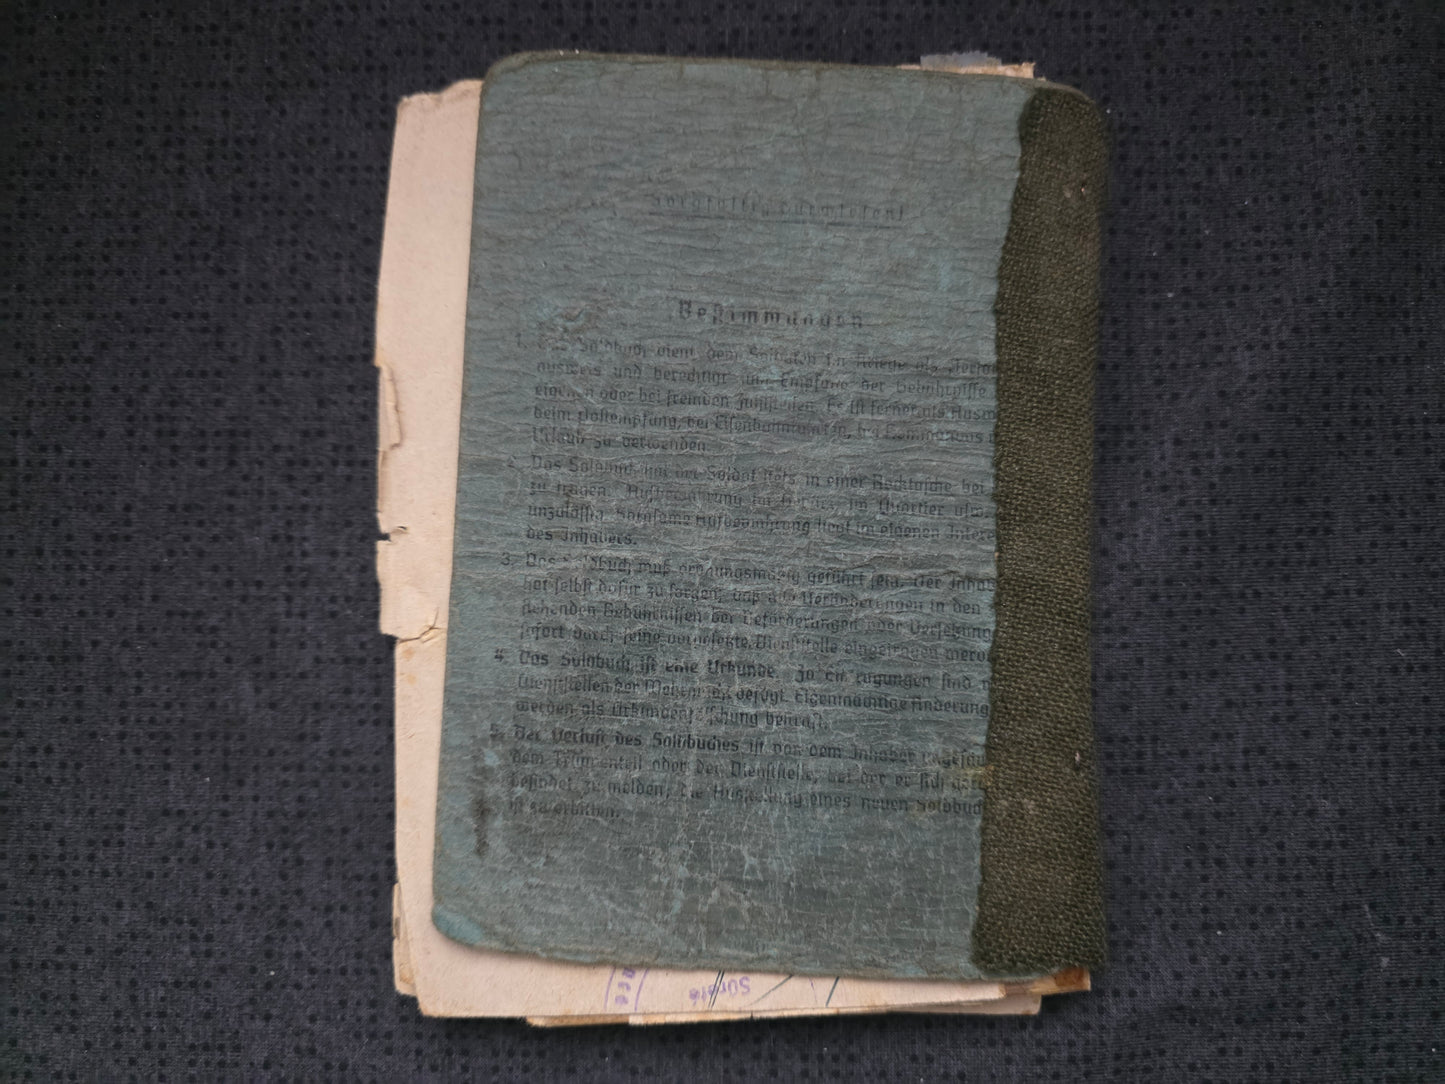 Sorgfältig durchlesen!
Bestimmungen
1. Soldbuch dient dem Soldaten im Kriege als
ausweis und berechtigt zum Empfang der Gebührnisse
eigenen oder bei fremden Zahlstellen. Er ist ferner als
beim Postempfang, bei Eisenbahnfahrten, bei Kommandos
Urlaub zu verwenden.
2. Das Soldbuch hat der Soldat stets in einer Rocktasche bei
zu tragen. Aufbewahrung im im Quartier usw.
unzulässig. Sorgsame Aufbewahrung liegt im eigenen
des Inhabers.
3. Das Soldbuch muß ordnungsmäßig geführt sein. Der
hat selbst dafür zu sorgen, daß alle Veränderungen in den
stehenden Gebührnissen bei Beförderungen oder
sofort durch seine vorgesetzte Dienststelle eingetragen
4. Das Soldbuch ist eine Urkunde. Zu Eintragungen sind
Dienststellen der Wehrmacht befugt. Eigenmächtige
werden als Urkundenfälschung bestraft.
5. Der Verlust des Soldbuches ist von dem Inhaber
dem Truppenteil oder der Dienststelle, bei der er sich
befindet, zu melden; die Ausstellung eines neuen
ist zu erbitten.